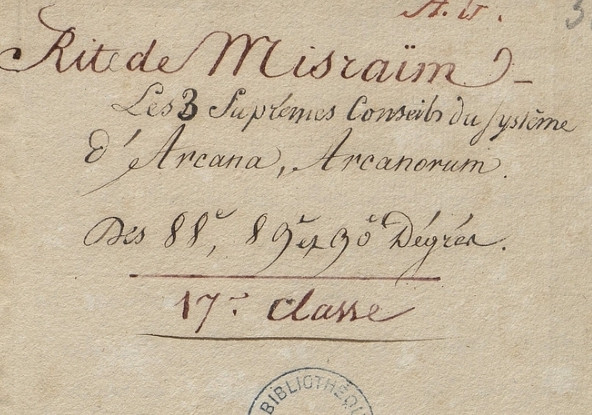 A. G.
Rit de Misraïm
Les 3 Suprêmes Conseils du Système
d'Arcana, Arcanorum.
Des 88e, 89e et 90e Dégrés.
17e classe
BIBLIOTHÈQU